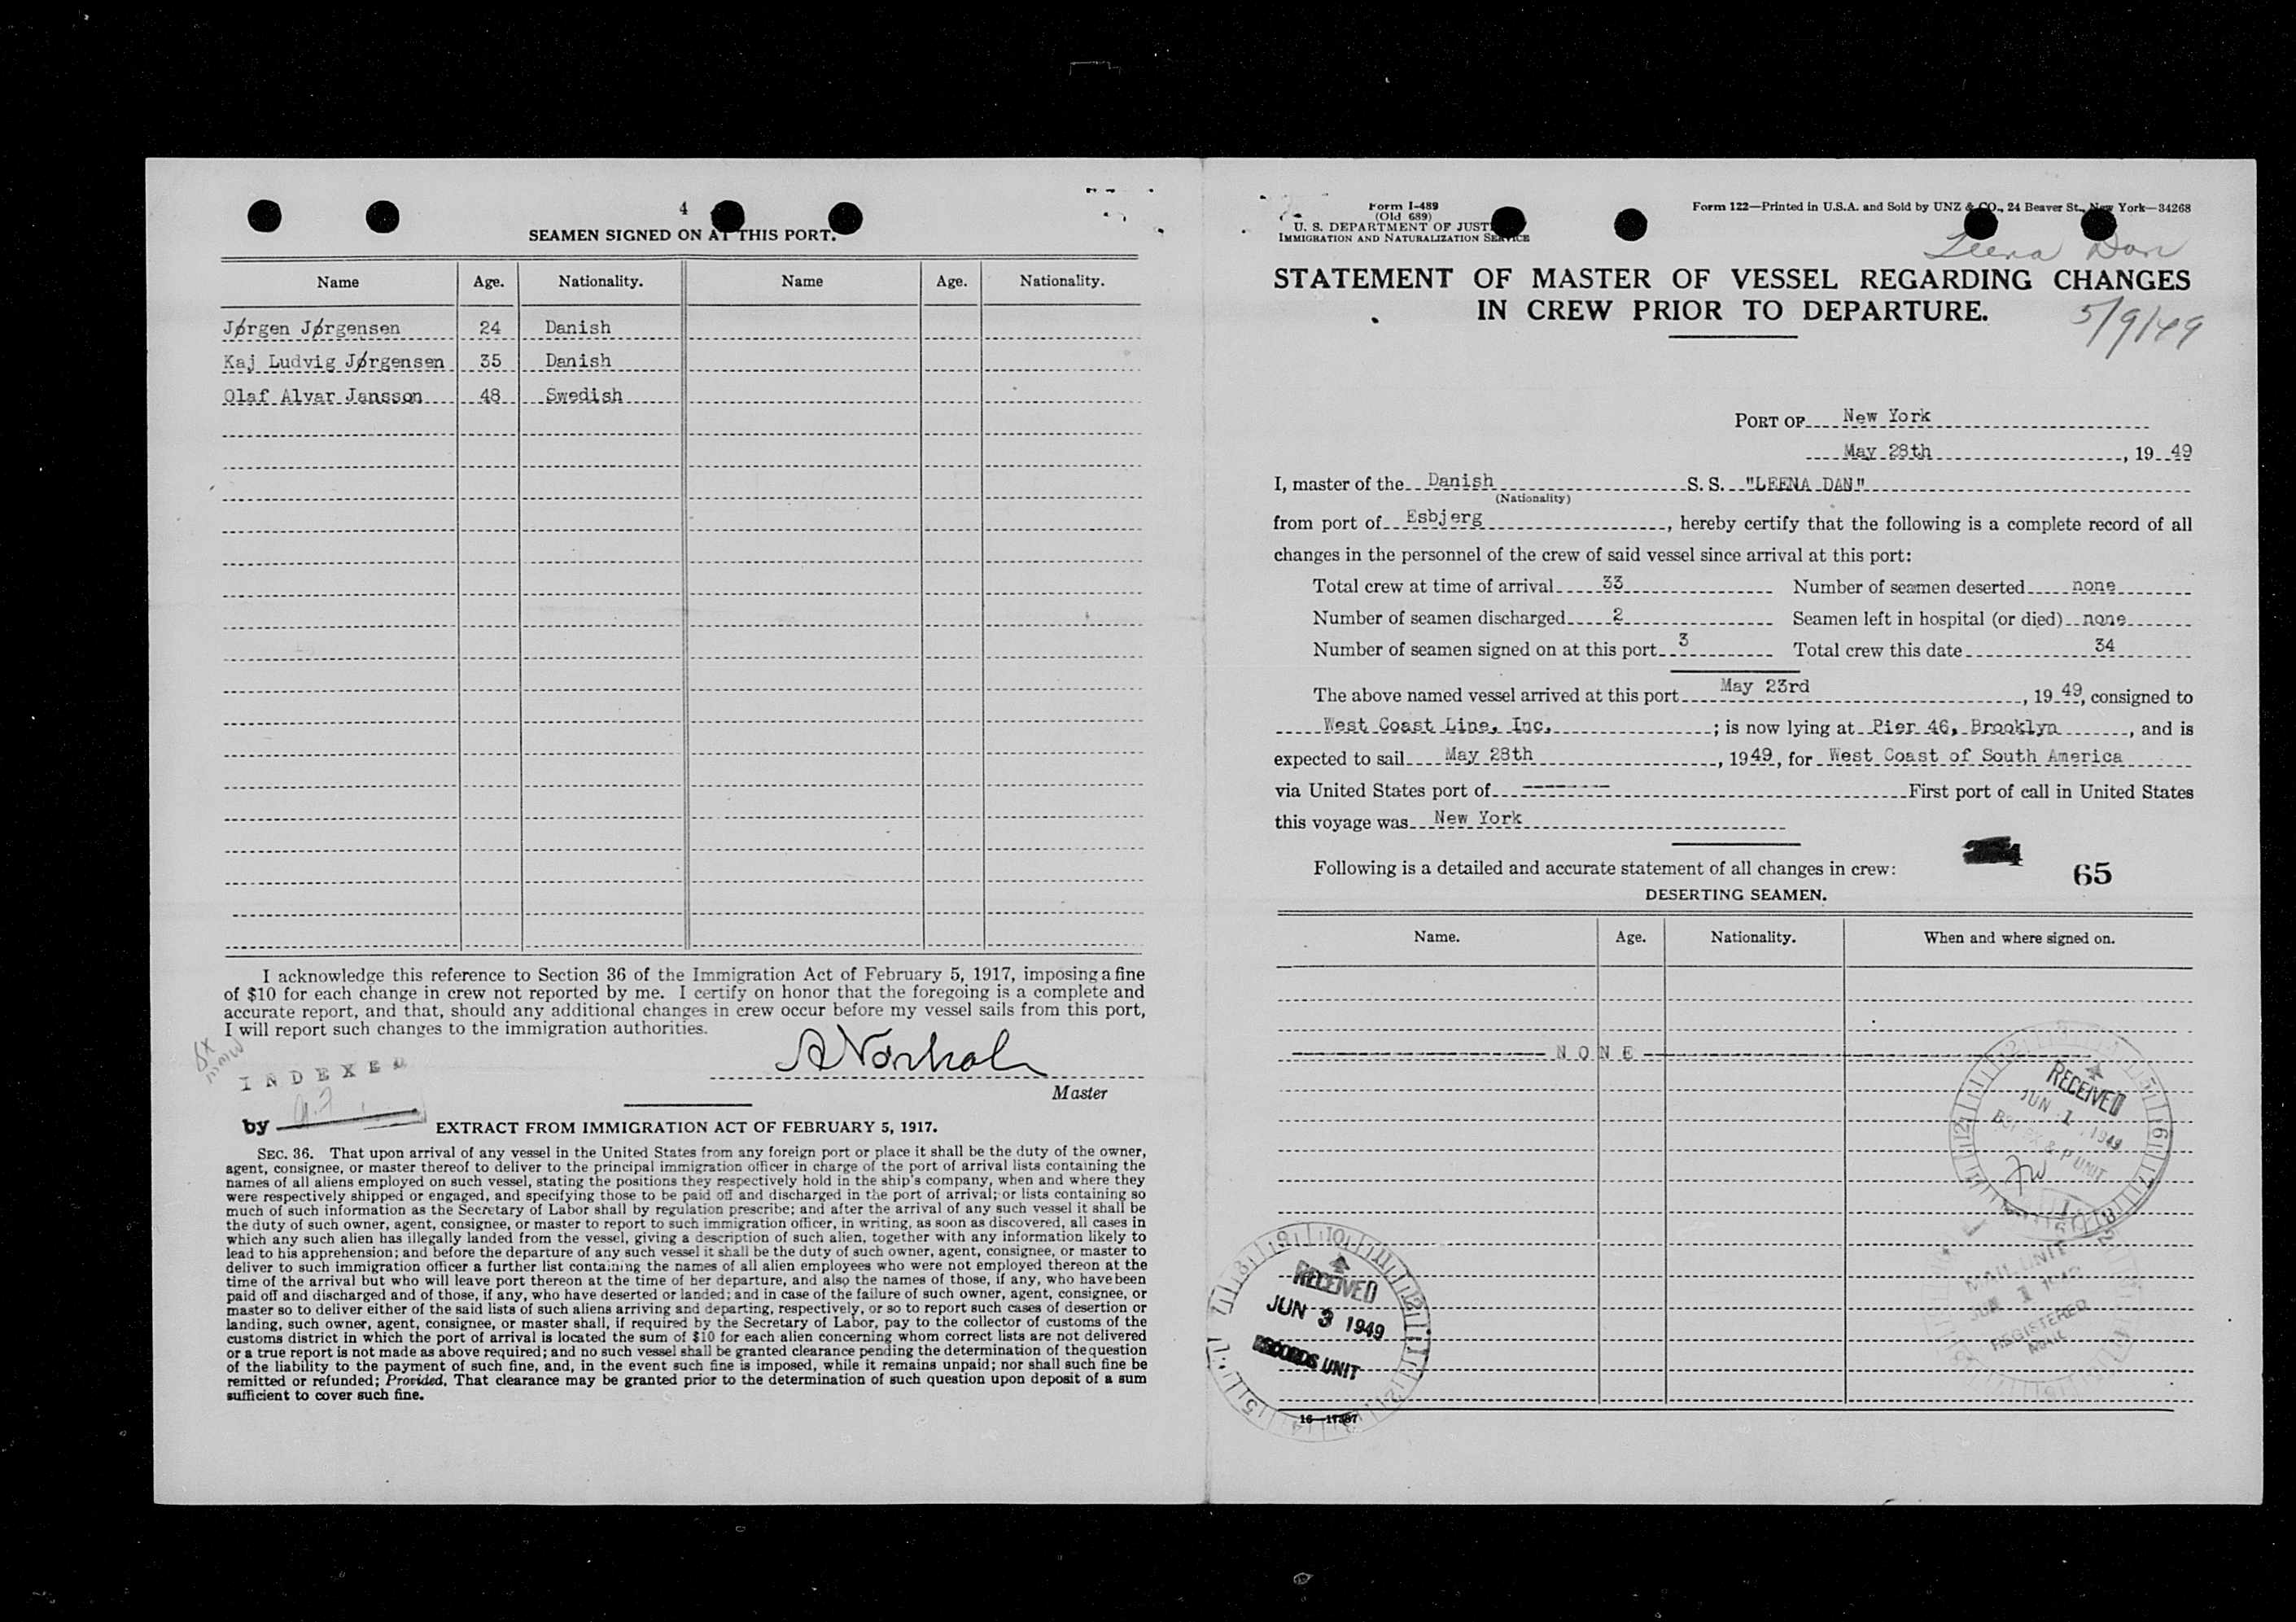 4
SEAMEN SIGNED ON AT THIS PORT.
Name Age. Nationality. Name Age. Nationality.
Jørgen Jørgensen 24 Danish
Kaj Ludvig Jørgensen 35 Danish
Olaf Alvar Jansson 48 Swedish
I acknowledge this reference to Section 36 of the Immigration Act of February 5, 1917, imposing a fine
of $10 for each change in crew not reported by me. I certify on honor that the foregoing is a complete and
accurate report, and that, should any additional changes in crew occur before my vessel sails from this port,
I will report such changes to the immigration authorities.
INDEXED
Master
by
EXTRACT FROM IMMIGRATION ACT OF FEBRUARY 5, 1917.
SEC. 36. That upon arrival of any vessel in the United States from any foreign port or place it shall be the duty of the owner,
agent, consignee, or master thereof to deliver to the principal immigration officer in charge of the port of arrival lists containing the
names of all aliens employed on such vessel, stating the positions they respectively hold in the ship's company, when and where they
were respectively shipped or engaged, and specifying those to be paid off and discharged in the port of arrival; or lists containing so
much of such information as the Secretary of Labor shall by regulation prescribe; and after the arrival of any such vessel it shall be
the duty of such owner, agent, consignee, or master to report to such immigration officer, in writing, as soon as discovered, all cases in
which any such alien has illegally landed from the vessel, giving a description of such alien, together with any information likely to
lead to his apprehension; and before the departure of any such vessel it shall be the duty of such owner, agent, consignee, or master to
deliver to such immigration officer a further list containing the names of all alien employees who were not employed thereon at the
time of the arrival but who will leave port thereon at the time of her departure, and also the names of those, if any, who have been
paid off and discharged and of those, if any, who have deserted or landed; and in case of the failure of such owner, agent, consignee, or
master so to deliver either of the said lists of such aliens arriving and departing, respectively, or so to report such cases of desertion or
landing, such owner, agent, consignee, or master shall, if required by the Secretary of Labor, pay to the collector of customs of the
customs district in which the port of arrival is located the sum of $10 for each alien concerning whom correct lists are not delivered
or a true report is not made as above required; and no such vessel shall be granted clearance pending the determination of the question
of the liability to the payment of such fine, and, in the event such fine is imposed, while it remains unpaid; nor shall such fine be
remitted or refunded; Provided, That clearance may be granted prior to the determination of such question upon deposit of a sum
sufficient to cover such fine.
Form I-489
(Old 689)
U. S. DEPARTMENT OF JUSTICE
IMMIGRATION AND NATURALIZATION SERVICE
Form 122—Printed in U.S.A. and Sold by UNZ & CO., 24 Beaver St., New York—34268
Leena Dan
STATEMENT OF MASTER OF VESSEL REGARDING CHANGES
IN CREW PRIOR TO DEPARTURE.
5/9/49
PORT OF New York
May 28th, 19 49
I, master of the Danish S. S. "LEENA DAN"
(Nationality)
from port of Esbjerg, hereby certify that the following is a complete record of all
changes in the personnel of the crew of said vessel since arrival at this port:
Total crew at time of arrival 33 Number of seamen deserted none
Number of seamen discharged 2 Seamen left in hospital (or died) none
Number of seamen signed on at this port 3 Total crew this date 34
The above named vessel arrived at this port May 23rd, 19 49, consigned to
West Coast Line, Inc. ; is now lying at Pier 46, Brooklyn, and is
expected to sail May 28th, 19 49, for West Coast of South America
via United States port of --------- First port of call in United States
this voyage was New York
Following is a detailed and accurate statement of all changes in crew:
65
DESERTING SEAMEN.
Name. Age. Nationality. When and where signed on.
NONE
RECEIVED
JUN 1 1949
P UNIT
MAIL UNIT
JUN 1 1949
REGISTERED
MAIL
RECEIVED
JUN 3 1949
RECORDS UNIT
16—17387